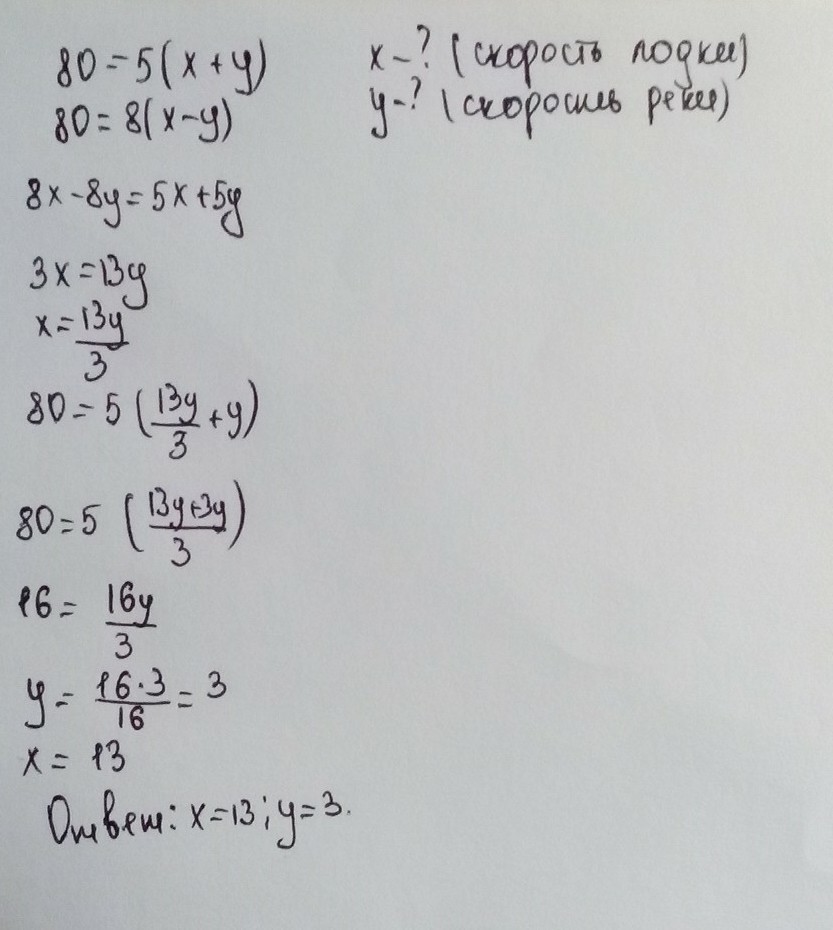 80=5(x+y) x-? (скорость лодки)
80=8(x-y) y-? (скорость реки)
8x-8y=5x+5y
3x=13y
x=13y/3
80=5(13y/3+y)
80=5(13y+3y/3)
16=16y/3
y=16·3/16=3
x=13
Ответ: x=13; y=3.